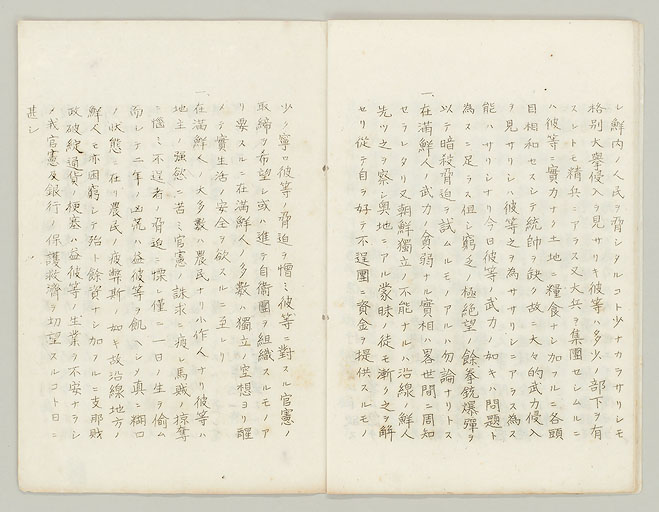 レ鮮内ノ人民ヲ脅シタルコト少ナカラサリシモ
格別大挙侵入ヲ見サリキ彼等ハ多少ノ部下ヲ有
スレトモ精兵ニアラス又大兵ヲ集團セシムルニ
ハ彼等ニ實力ナク土地ニ糧食ナシ加フルニ各頭
目相和セスシテ統帥ヲ缺ク故ニ大々的武力侵入
ヲ見サリシハ彼等之ヲ為ササリシニアラス為ス
能ハサリシナリ今日彼等ノ武力ノ如キハ問題ト
為スニ足ラス但シ窮乏ノ極絶望ノ餘拳銃爆彈ヲ
以テ暗殺脅迫ヲ試ムルモノアルハ勿論ナリトス
一、在滿鮮人ノ武力ノ貧弱ナル實相ハ畧世間ニ周知
セラレタリ又朝鮮獨立ノ不能ナルハ沿線ノ鮮人
先ツ之ヲ察シ奥地ニアル蒙昧ノ徒モ漸ク之ヲ解
セリ從テ自ラ好テ不逞團ニ資金ヲ提供スルモノ
少ク寧ロ彼等ノ脅迫ヲ憎ミ彼等ニ對スル官憲ノ
取締ヲ希望シ或ハ進テ自衛團ヲ組織スルモノア
リ要スルニ在滿鮮人ノ多數ハ獨立ノ空想ヨリ醒
メテ實生活ノ安全ヲ欲スルニ至レリ
一、在滿鮮人ノ大多數ハ農民ナリ小作人ナリ彼等ハ
地主ノ強慾ニ苦ミ官憲ノ誅求ニ痩レ馬賊ノ掠奪
ニ惱ミ不逞者ノ脅迫ニ懍レ僅ニ一日ノ生ヲ偷ム
而シテ二年ノ凶荒ハ益彼等ヲ飢ヘシメ真ニ糊口
ノ状態ニ在リ農民ノ疲弊斯ノ如キ故沿線地方ノ
鮮人モ亦困窮シテ殆ト餘資ナシ加フルニ支那財
政破綻通貨ノ梗塞ハ益彼等ノ生業ヲ不安ナラシ
メ我官憲及銀行ノ保護救濟ヲ切望スルコト日ニ
甚シ